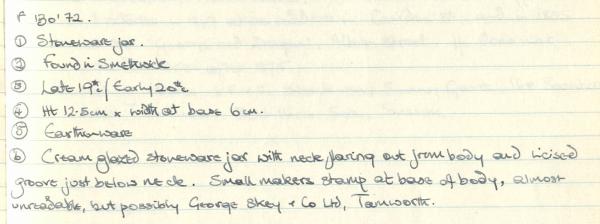 F '30' 72.
① Stoneware jar.
② Found in Smethwick
③ Late 19th / Early 20th c
④ Ht 12.5cm x width at base 6cm.
⑤ Earthenware
⑥ Cream glazed stoneware jar with neck flaring out from body and incised
groove just below neck. Small makers stamp at base of body, almost
unreadable, but possibly George Skey & Co Ltd, Tamworth.